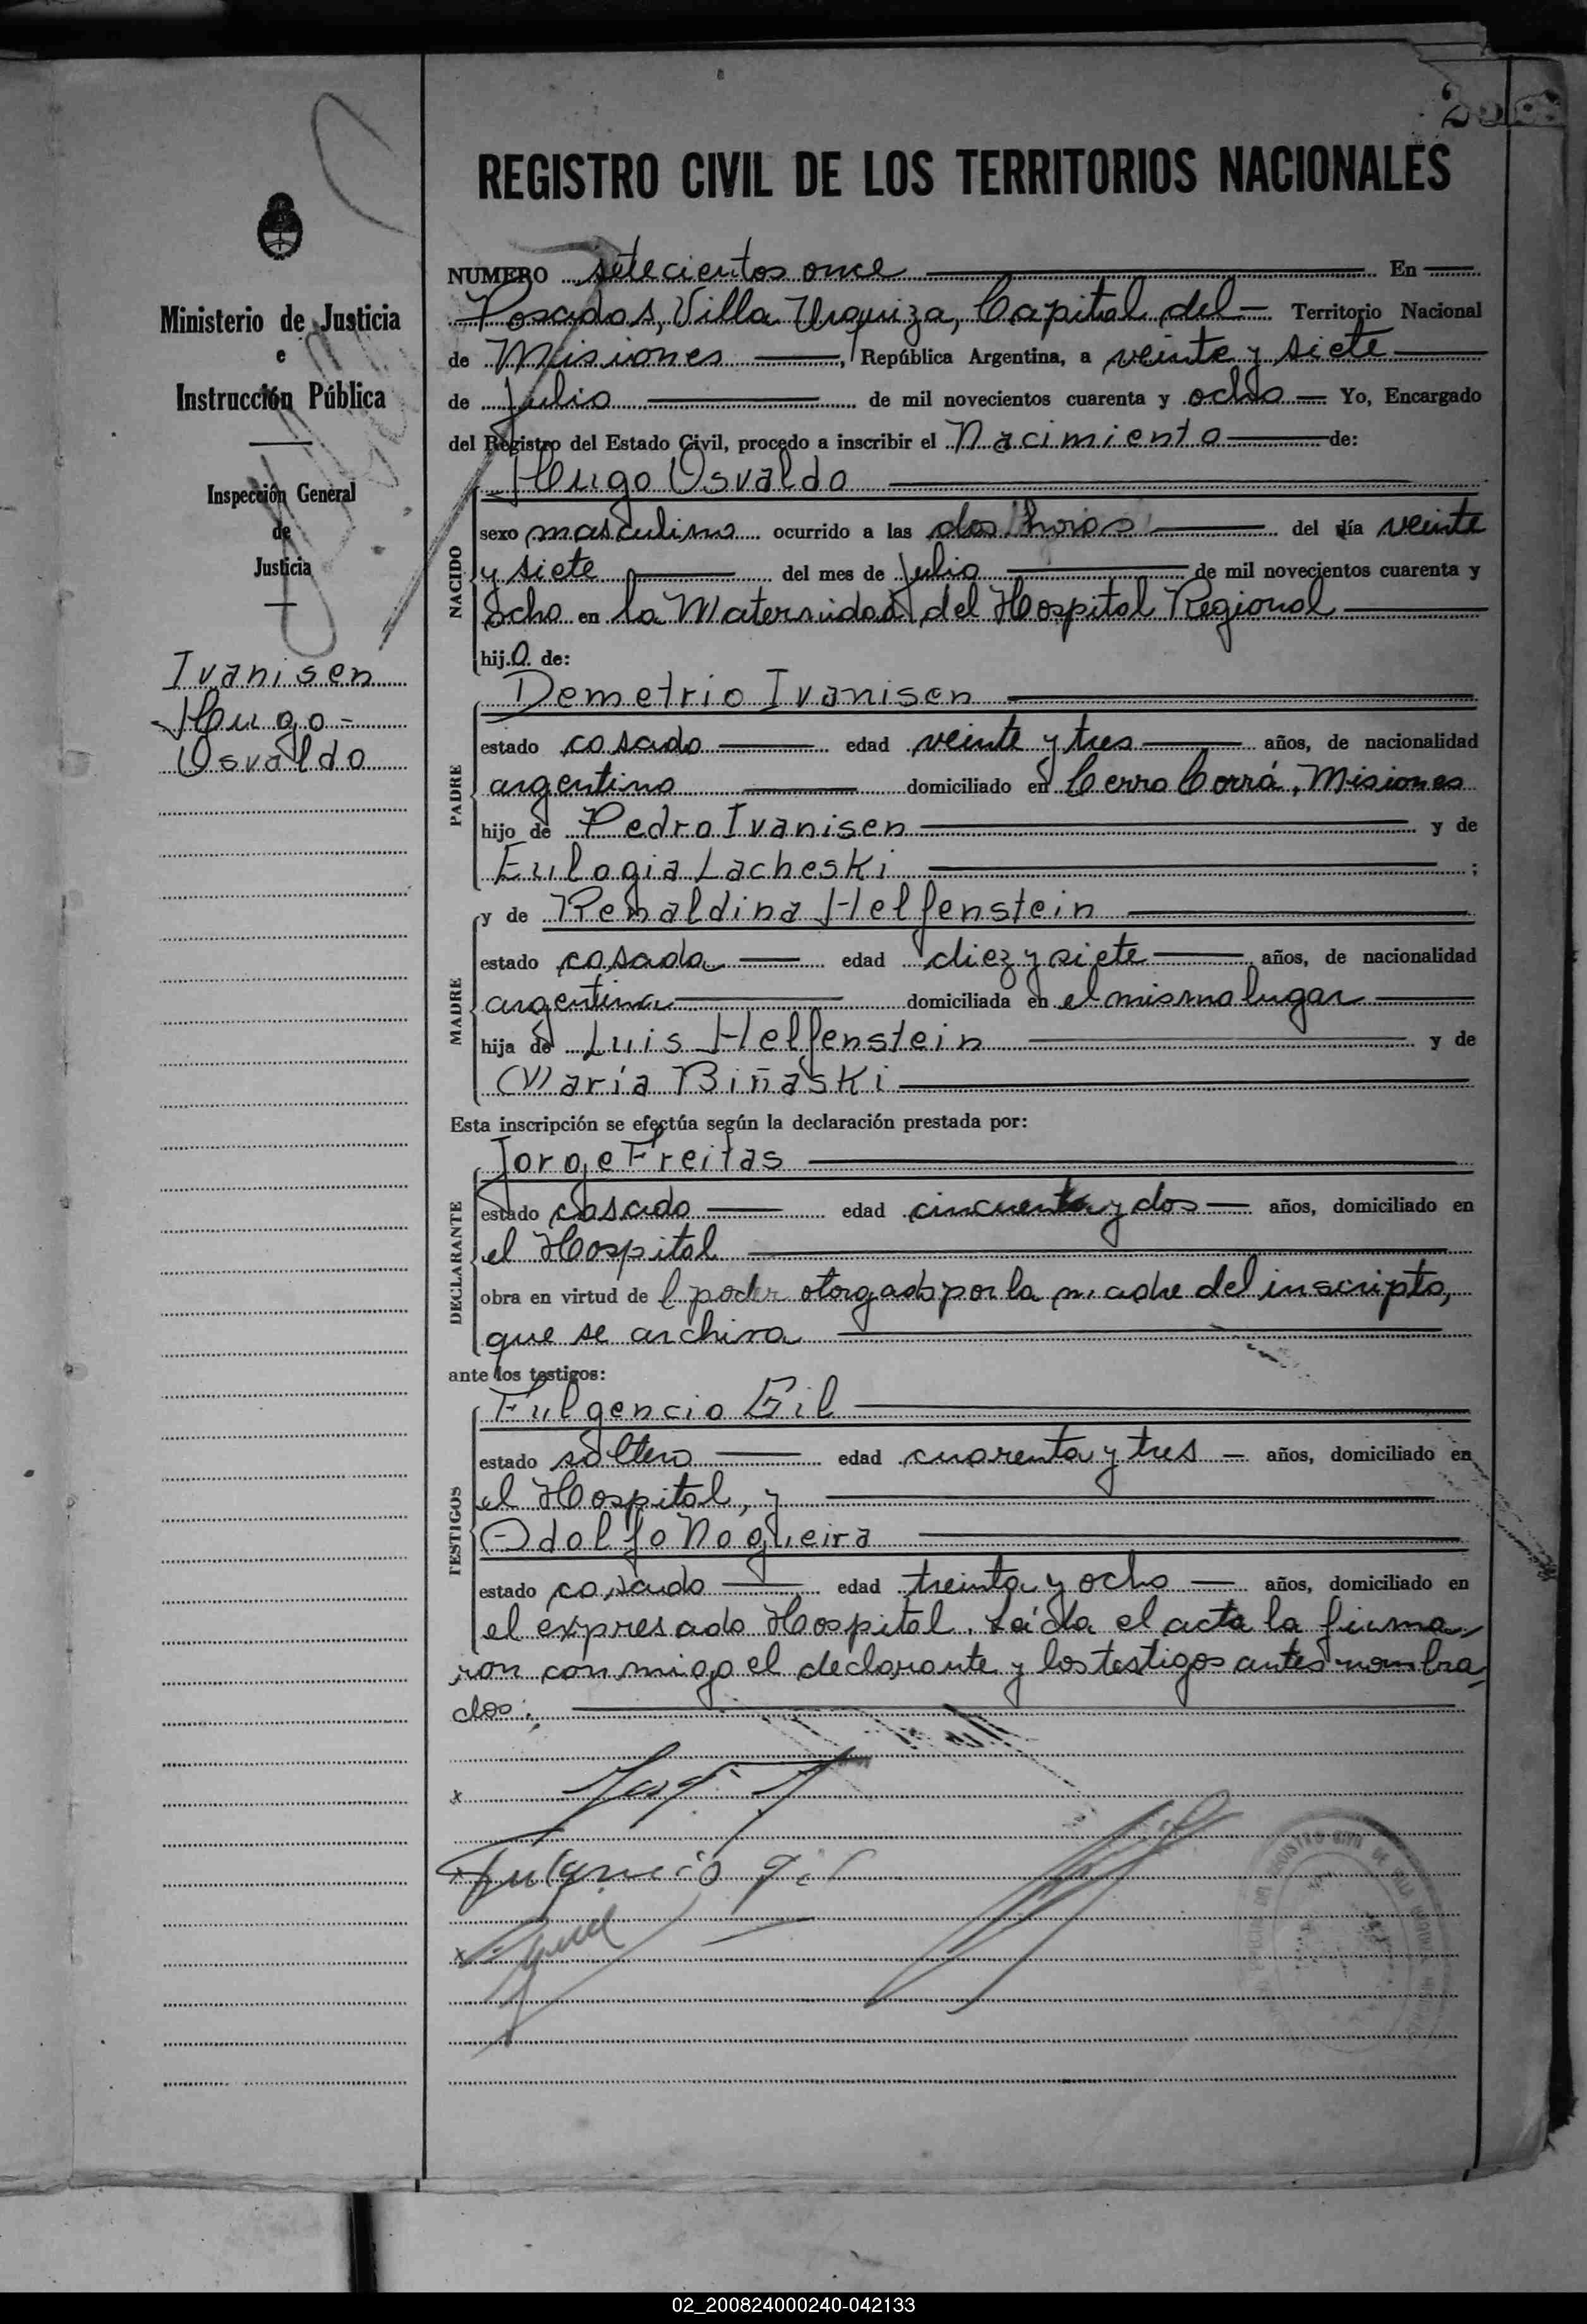 REGISTRO CIVIL DE LOS TERRITORIOS NACIONALES
Ministerio de Justicia
e
Instrucción Pública
Inspección General
de
Justicia
Ivanisen
Hugo =
Osvaldo
NUMERO setecientos once En
Posadas, Villa Urquiza, Capital del Territorio Nacional
de Misiones, República Argentina, a veinte y siete
de Julio de mil novecientos cuarenta y ocho Yo, Encargado
del Registro del Estado Civil, procedo a inscribir el Nacimiento de:
Hugo Osvaldo
NACIDO
sexo masculino ocurrido a las dos horas del día veinte
y siete del mes de Julio de mil novecientos cuarenta y
ocho en la Maternidad del Hospital Regional
hijo de:
Demetrio Ivanisen
PADRE
estado casado edad veinte y tres años, de nacionalidad
argentino domiciliado en Cerro Corá, Misiones
hijo de Pedro Ivanisen y de
Eulogia Lacheski ;
MADRE
y de Remaldina Helfenstein
estado casada edad diez y siete años, de nacionalidad
argentina domiciliada en el mismo lugar
hija de Luis Helfenstein y de
María Biñaski
Esta inscripción se efectúa según la declaración prestada por:
Jorge Freitas
DECLARANTE
estado casado edad cincuenta y dos años, domiciliado en
el Hospital
obra en virtud de l poder otorgado por la madre del inscripto,
que se archiva
ante los testigos:
Fulgencio Gil
TESTIGOS
estado soltero edad cuarenta y tres años, domiciliado en
el Hospital, y
Adolfo Nogueira
estado casado edad treinta y ocho años, domiciliado en
el expresado Hospital. Leída el acta la firma-
ron conmigo el declarante y los testigos antes nombra-
dos.
x
Fulgencio Gil
x
02_200824000240-042133